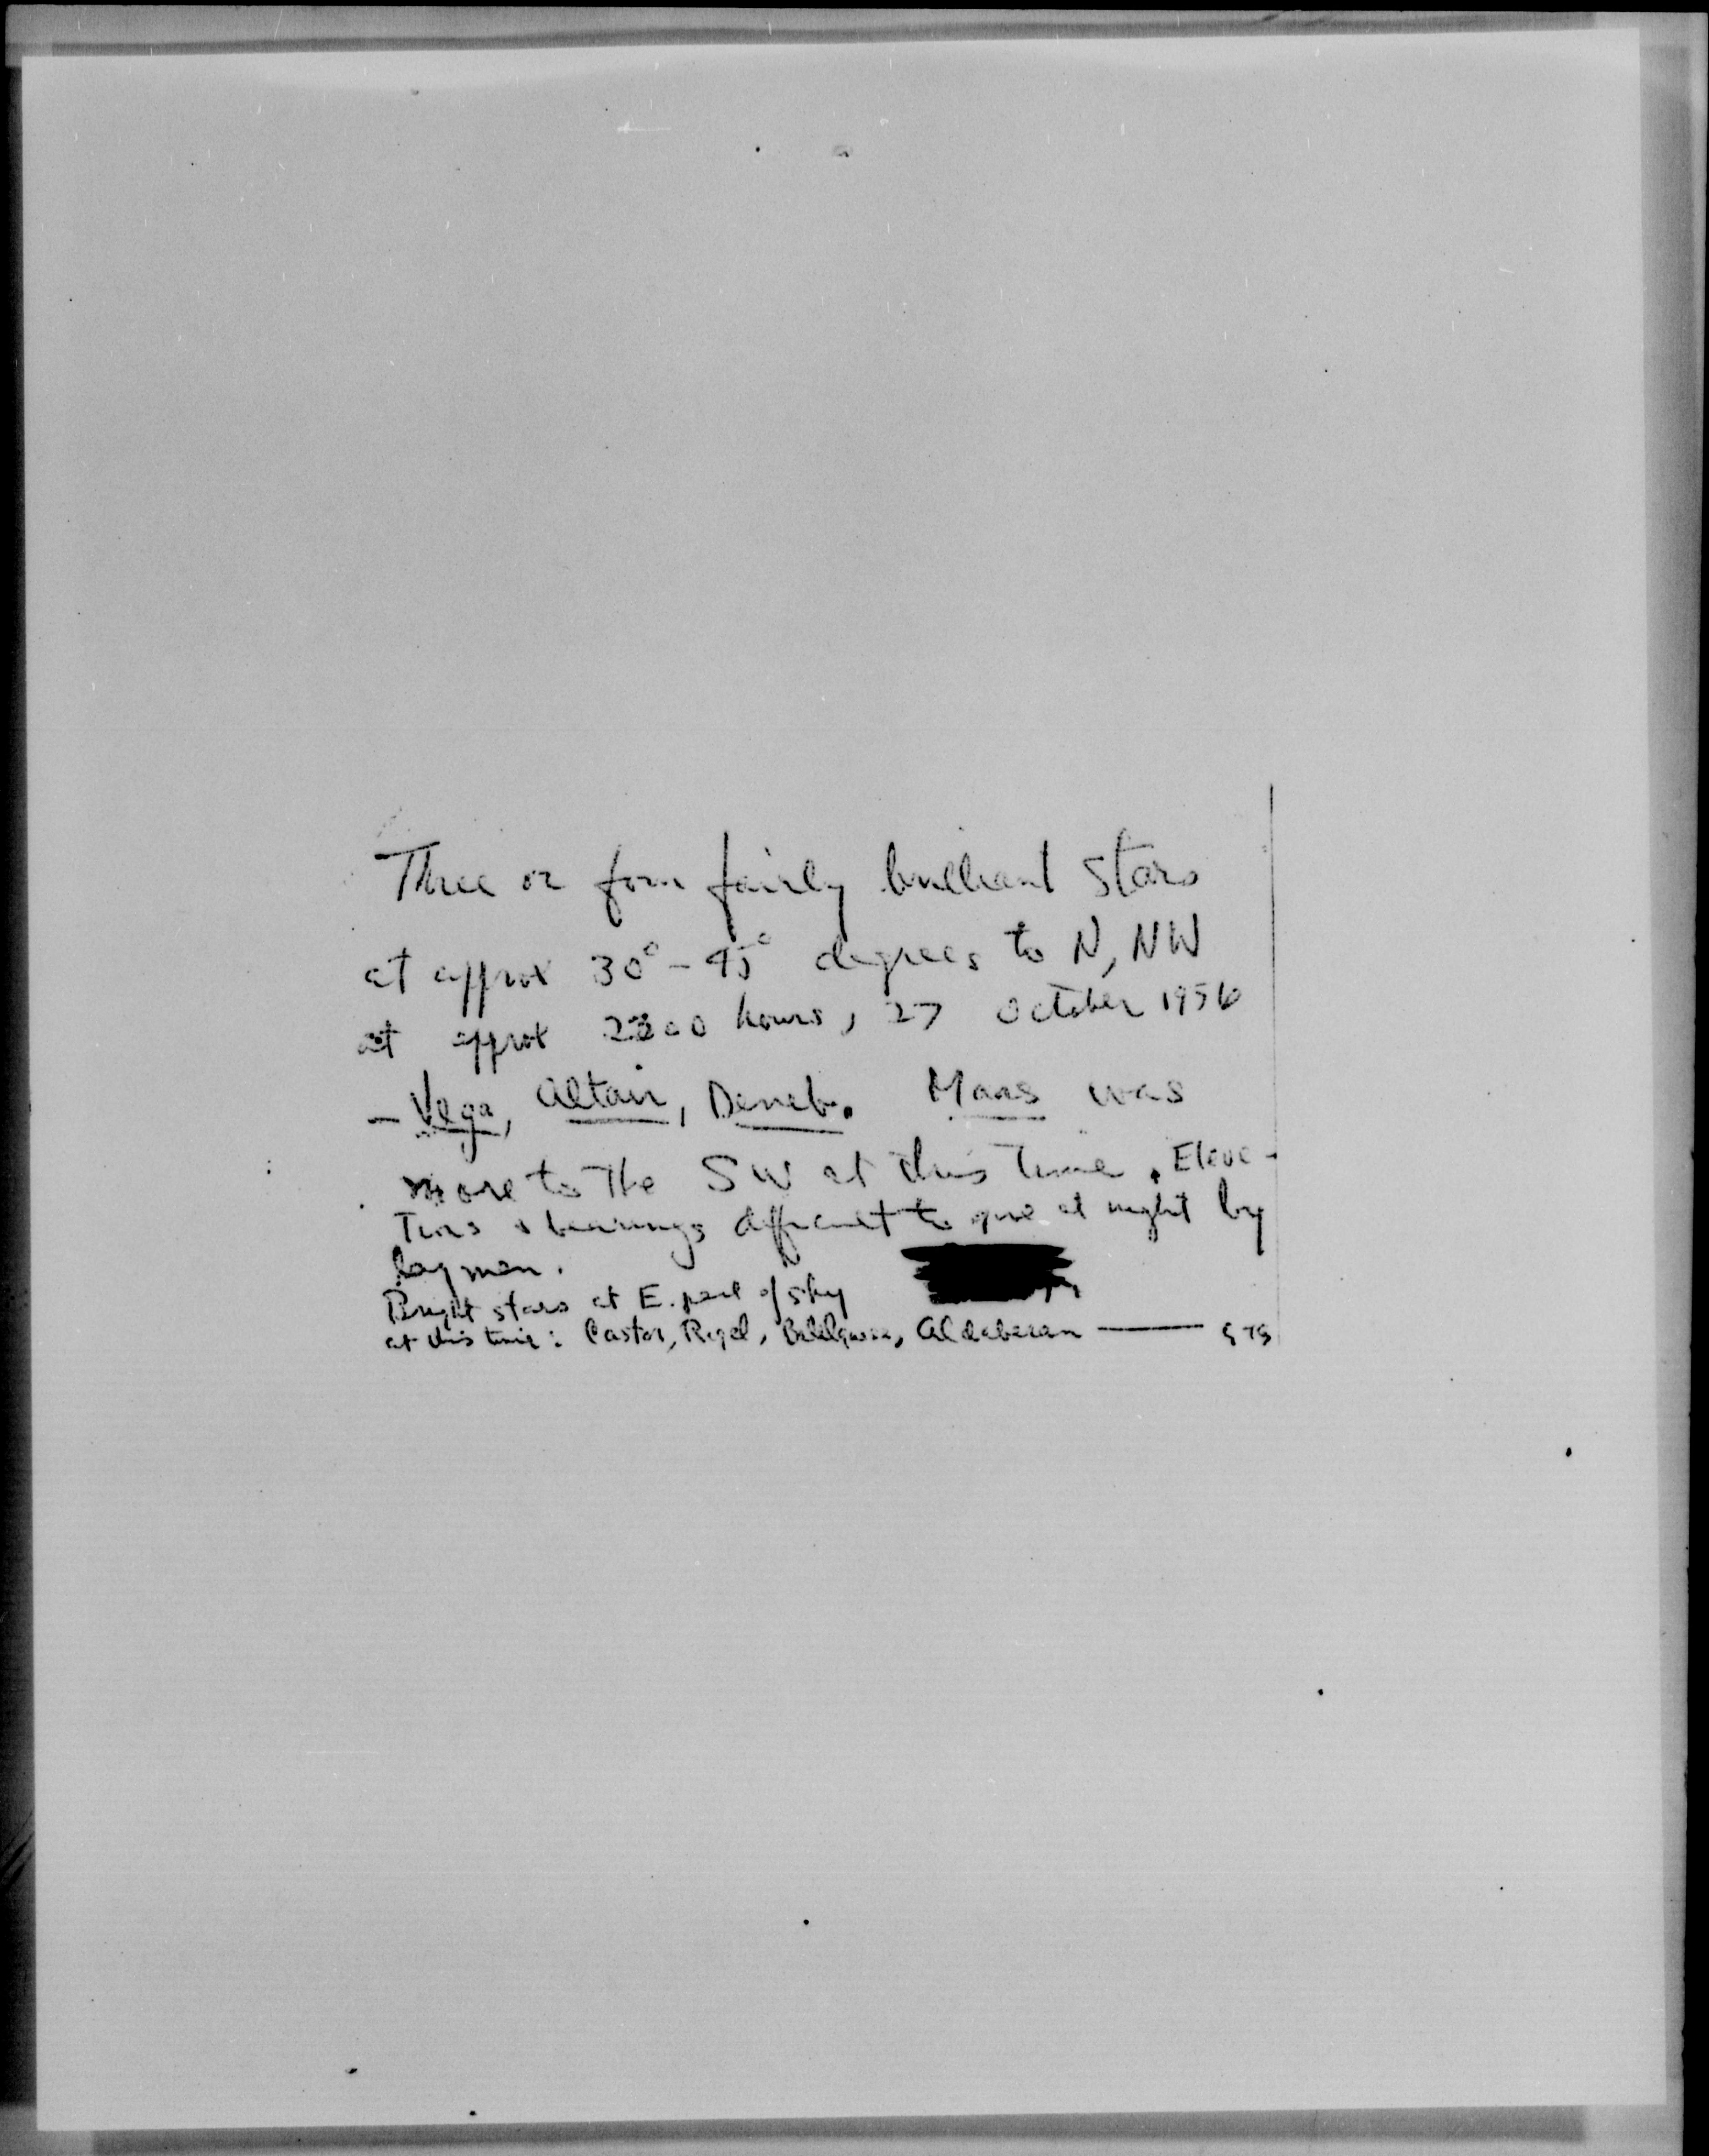 Three or four fairly brilliant stars
at approx 30° - 45° degrees to N, NW
at approx 2200 hours, 27 October 1956
- Vega, Altair, Deneb. Mars was
more to the SW at this time. Eleva-
tions & bearings difficult to give at night by
laymen.
Bright stars at E. part of sky
at this time: Castor, Rigel, Betelgeuse, Aldebaran ———